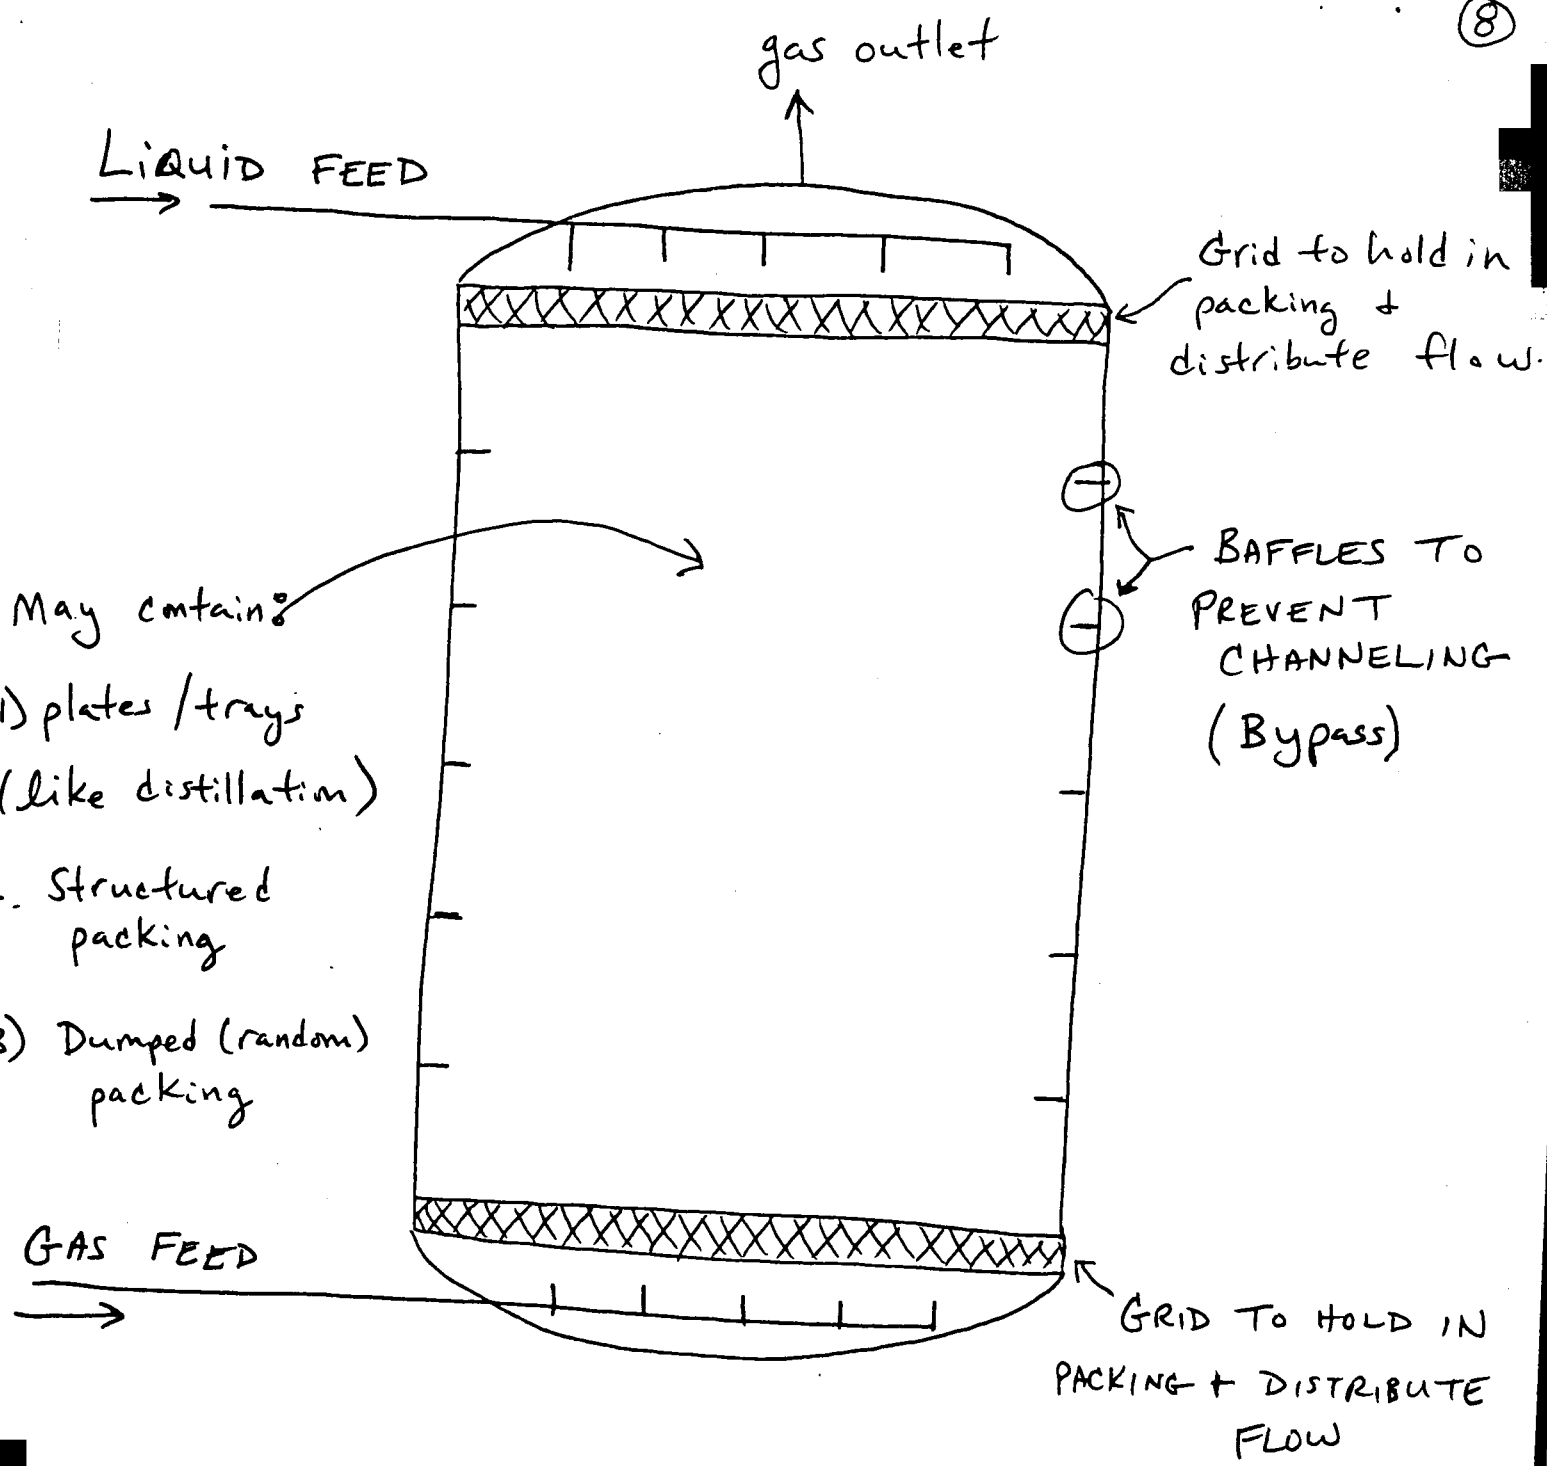 8
gas outlet
LIQUID FEED
Grid to hold in
packing +
distribute flow.
BAFFLES TO
PREVENT
CHANNELING
(Bypass)
May contain:
1) plates / trays
(like distillation)
. Structured
packing
3) Dumped (random)
packing
GAS FEED
GRID TO HOLD IN
PACKING + DISTRIBUTE
FLOW